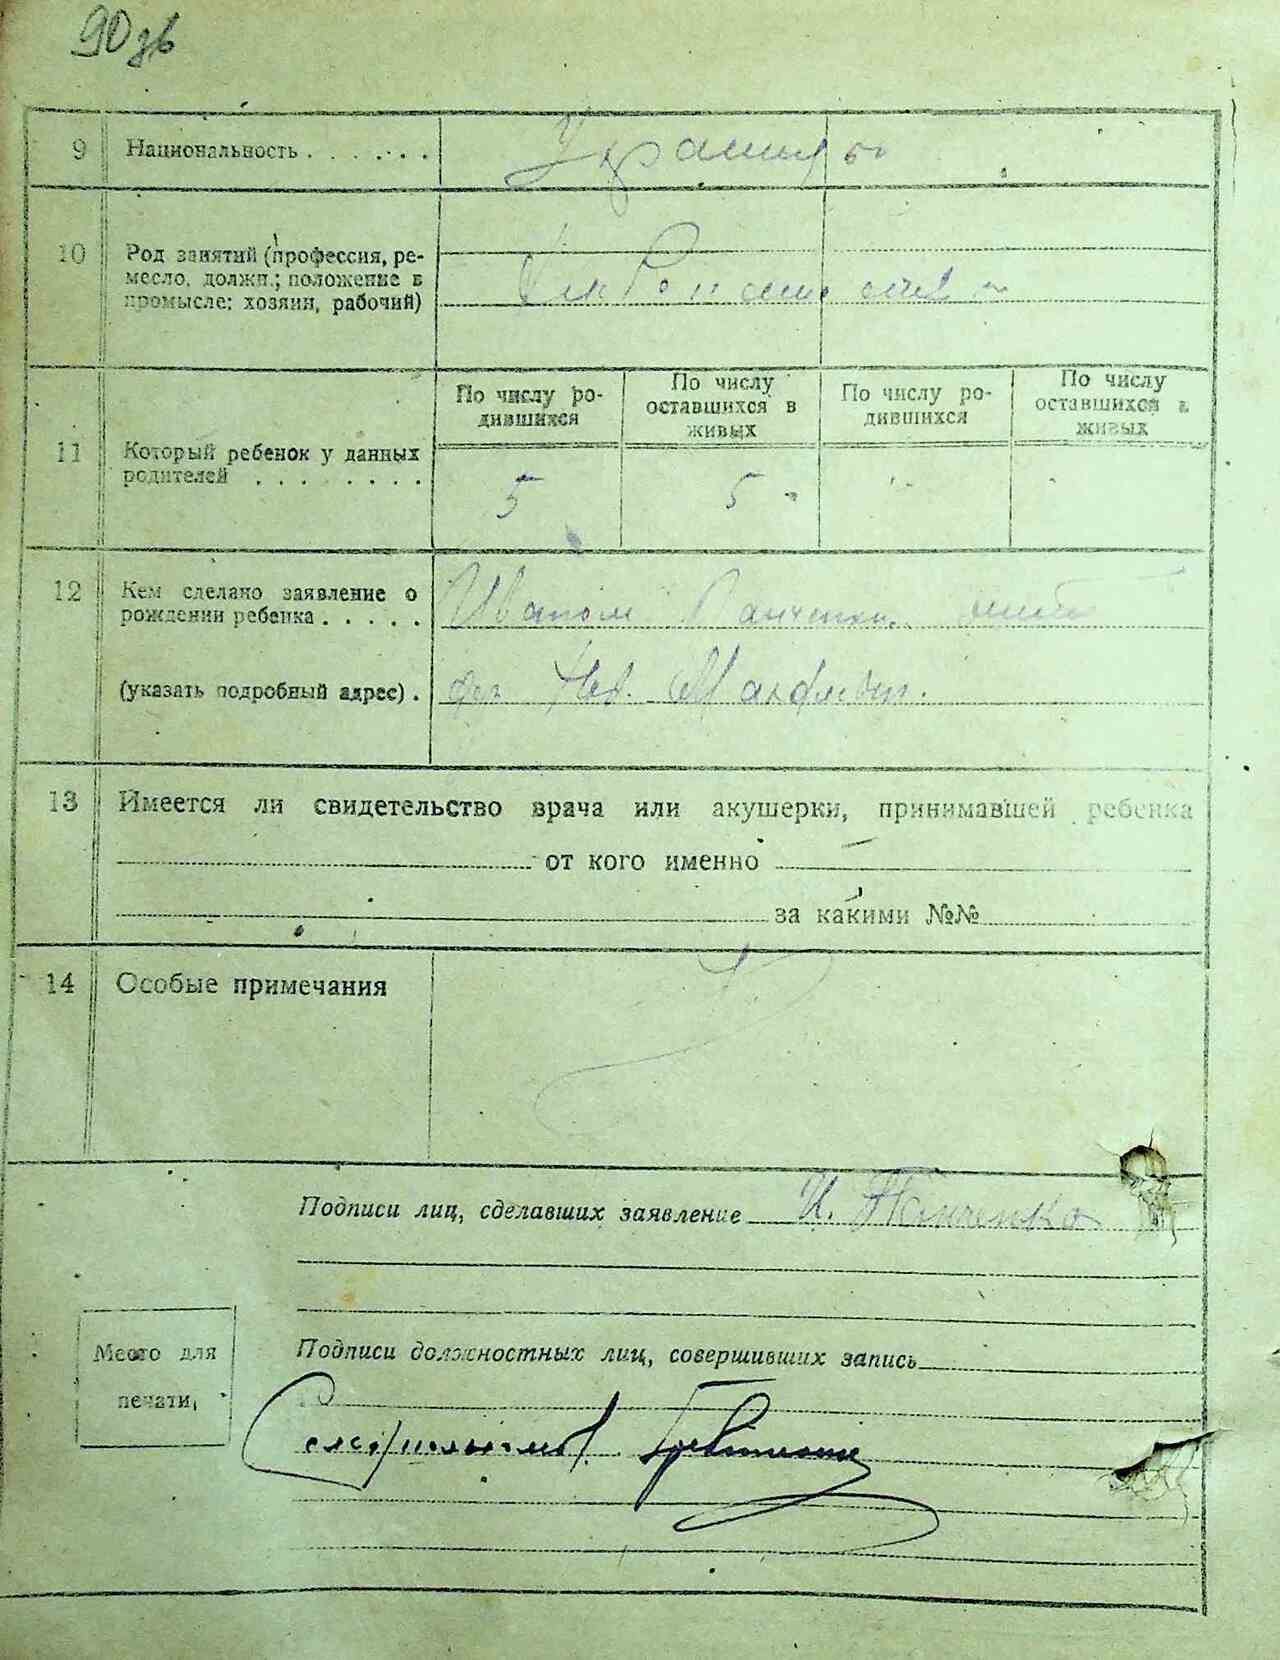 90 зв
9 Национальность . . . . . . .
10 Род занятий (профессия, ре-
месло, должн.; положение в
промысле: хозяин, рабочий)
По числу ро-
дившихся
По числу
оставшихся в
живых
По числу ро-
дившихся
По числу
оставшихся в
живых
11 Который ребенок у данных
родителей . . . . . . . .
5 5
12 Кем сделано заявление о
рождении ребенка . . . . .
Иваном
(указать подробный адрес) .
13 Имеется ли свидетельство врача или акушерки, принимавшей ребенка
от кого именно
за какими №№
14 Особые примечания
Подписи лиц, сделавших заявление И.
Место для
печати,
Подписи должностных лиц, совершивших запись